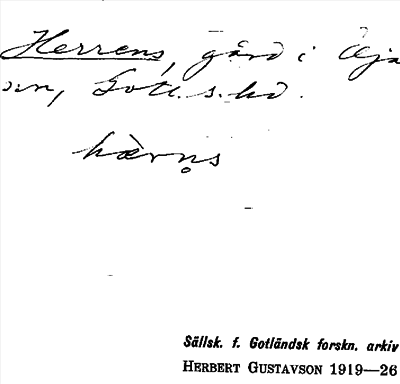 Herrens, gård i Öja
sn, Gotl. s. hd.
hærn̥s
Sällsk. f. Gotländsk forskn. arkiv
HERBERT GUSTAVSON 1919—26